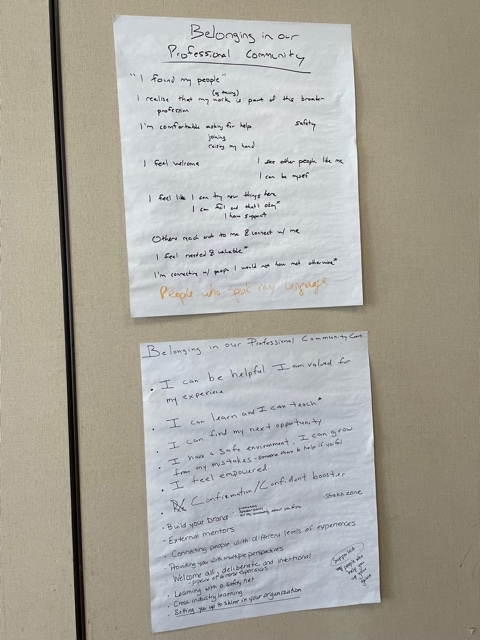 Belonging in our
Professional Community
"I found my people"
I realize that my work is part of this broader
profession
I'm comfortable asking for help safety
joining
raising my hand
I feel welcome I see other people like me
I can be myself
I feel like I can try new things here
I can fail and that's okay*
I have support
Others reach out to me & connect w/ me
I feel needed & valuable*
I'm connecting w/ people I would not have met otherwise*
People who speak my language
Belonging in our Professional Community Cont
• I can be helpful I am valued for
my experience
• I can learn and I can teach*
• I can find my next opportunity
• I have a safe environment. I can grow
from my mistakes - someone there to help if you fall
• I feel empowered
• Confirmation/Confident booster
• Build your brand
• External mentors
stretch zone
• Connecting people with different levels of experiences
• Providing you with multiple perspectives
• Welcome all, deliberate and intentional
• Learning with a safety net
• Cross industry learning
• Setting you up to shine in your organization
people who
help you
up your
game